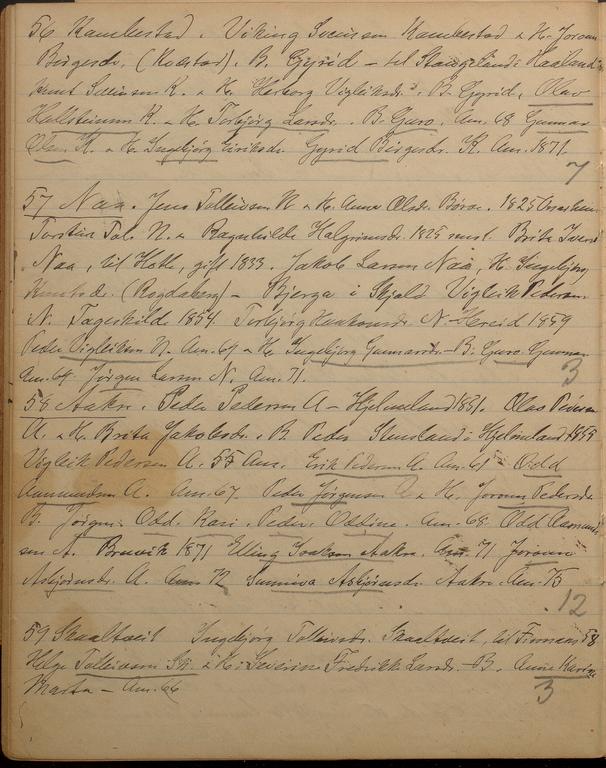 56 Kambestad. Viking Sveinson Kambestad & H. Joronn
Birgesdr. (Rodstad). B. Gyrid – til Stangeland i Haaland
Knut Sellinson K. & H. Herborg Vigleiksdr. B. Gyrid, Olav
Hallsteinson K. & H. Torbjørg Larsdr. B. Guro. Am. 68 Gunnar
Olsn. K. & H. Ingebjørg Eiriksdr. Gyrid Birgesdr. K. Am. 1871.
7
57 Naa. Jens Tolleivson N. & H. Anna Olsdr. Børve. 1825
Torstein Tol. N. & Ragnhilde Halgrimsdr. 1825 Brita Ivers
Naa, til Hotle, gift 1833. Jakob Larson Naa, H. Ingebjørg
Knutsdr. (Rogdaberg) – Bjerga i Skjold Vigleik Pederson
N. Fagerhilde 1854. Torbjørg Haakonsdr. N. Hereid 1859
Peder Vigleikson N. Am. 61 & H. Ingebjørg Gunnarsdr. B. Guro Gunnar
Am. 69. Jørgen Larson N. Am. 71.
3
58 Aakre. Peder Pederson A – Hjelmeland 1851. Olav Pederson
A. & H. Brita Jakobsdr. B. Peder i Hjelmeland 1855
Vigleik Pederson A. 55 Am. Erik Pederson A. Am. 61 Odd
Aamundson A. Am. 67. Peder Jørgenson A & H. Joronn Pedersdr.
B. Jørgen. Odd. Kari. Peder. Oddine. Am. 68. Odd Aamund
son A. 1871 Elling Isakson Aakre. Am. 71 Joronn
Asbjørnsdr. A. Am 72 Sunniva Asbjørnsdr. Aakre. Am. 75
12
59 Skaaltveit Ingebjørg Tolleivsdr. Skaaltveit, til 58
Helge Tolleivson Sk. & H. Severine Fredrikke Larsdr. B. Anna Karine
Marta – Am. 66
3